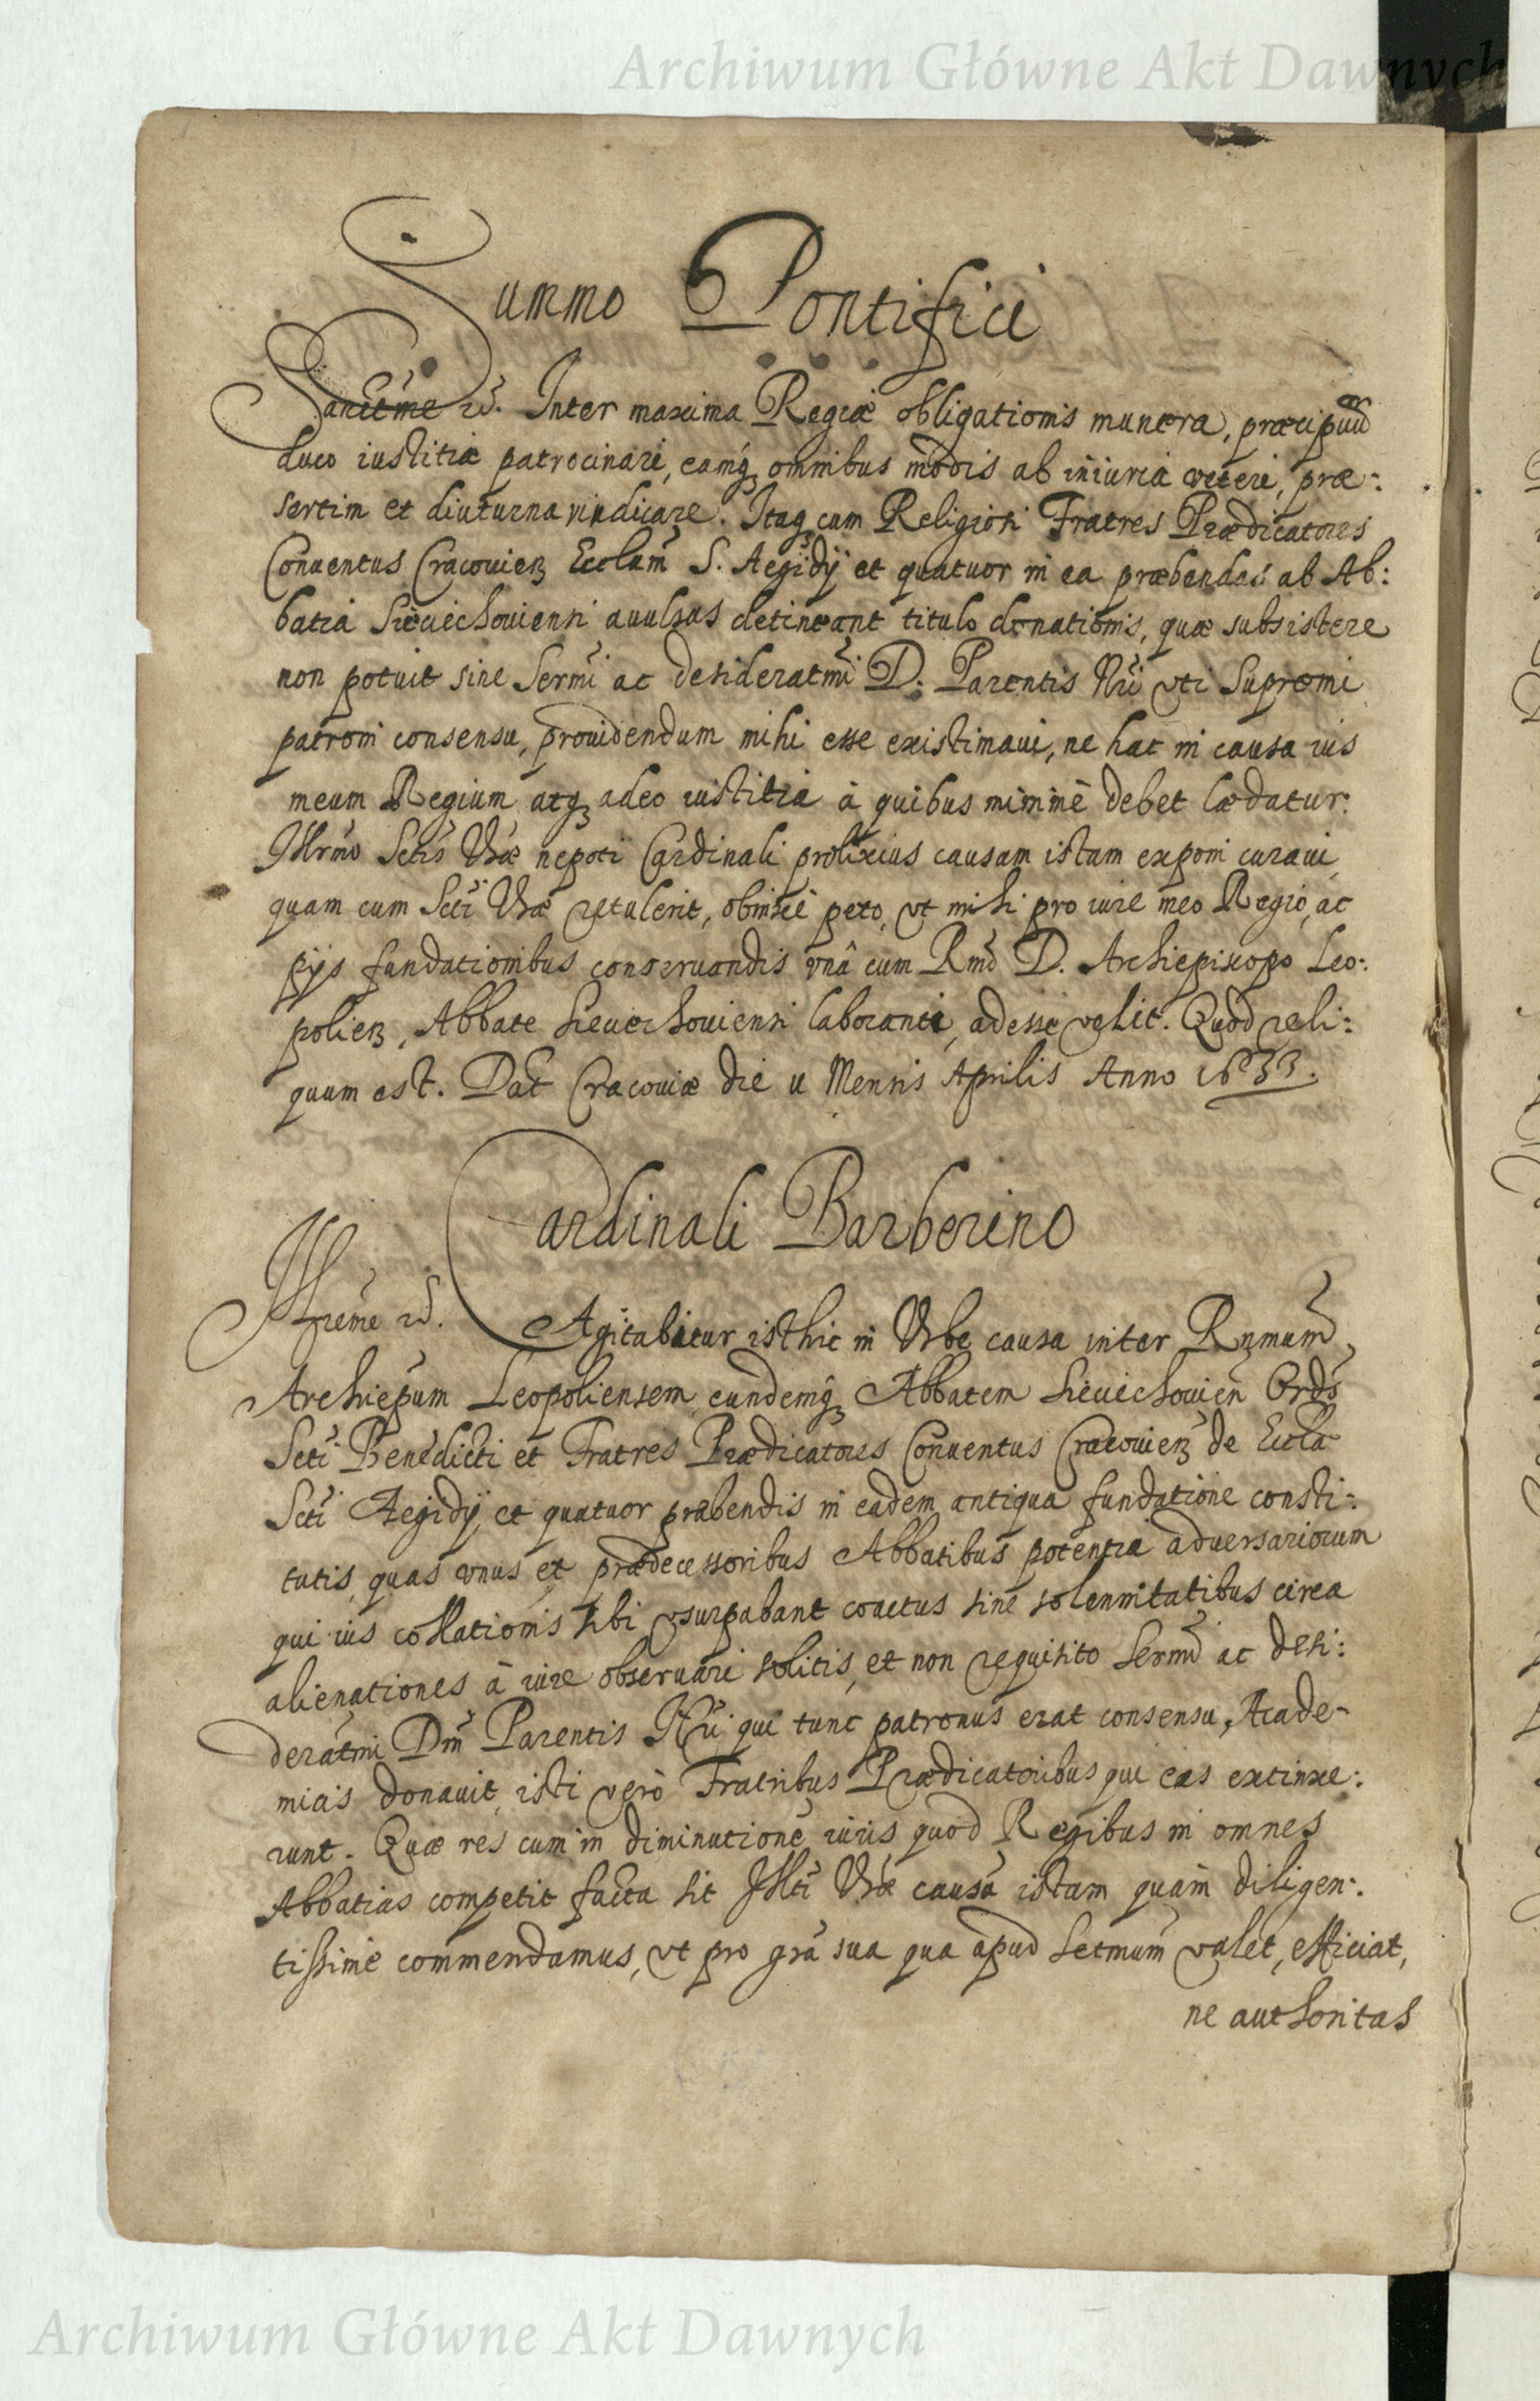 Archiwum Główne Akt Dawnych
Summo Pontifici
Sanctme etc. Inter maxima Regiæ obligationis munera, præcipuū
duco iustitiæ patrocinari, eamq́ꝫ omnibus modis ab iniuria veteri, præ-:
sertim et diuturna vindicare. Itaqꝫ cum Religiosi Fratres Prædicatores
Conuentus Cracouieꝫ Ecclam̃ S. Aegidÿ et quatuor in ea præbendas ab Ab:
batia Sieciechouiensi auulsas detineant titulo donationis, quæ subsistere
non potuit sine Sermi ac desideratmi D. Parentis Nri vti Supremi
patroni consensu, prouidendum mihi esse existimaui, ne hac in causa ius
meum Regium atqꝫ adeo iustitia à quibus minimè debet lædatur.
Illrmo Sctis Vræ nepoti Cardinali prolixius causam istam exponi curaui,
quam cum Scti Vræ retulerit, obnixè peto, vt mihi pro iure meo Regio, ac
pijs fundationibus conseruandis vnâ cum Rmo D. Archiepiscopo Leo-:
polieꝫ, Abbate Sieciechouiensi laboranti, adesse velit. Quod reli-:
quum est. Dat Cracouiæ die II Mensis Aprilis Anno 1633.
Cardinali Barberino
Illreme etc. Agitabitur isthic in Vrbe causa inter Rnmum
Archiepum Leopoliensem, eundemq́ꝫ Abbatem Sieciechouien̄ Ordis
Scti Benedicti et Fratres Prædicatores Conuentus Cracouieꝫ de Eccla
Scti Aegidÿ et quatuor præbendis in eadem antiqua fundatione consti-:
tutis, quas vnus ex prædecessoribus Abbatibus potentia aduersariorum
qui ius collationis sibi vsurpabant coactus sine solennitatibus circa
alienationes à iure obseruari solitis, et non requisito Sermi ac desi-:
deratmi Dni Parentis Nri qui tunc patronus erat consensu, Acade-
miæ donauit, isti verò Fratribus Prædicatoribus qui eas extinxe-:
runt. Quæ res cum in diminutionē iuris quod Regibus in omnes
Abbatias competit facta sit Illti Vræ causā istam quàm diligen-:
tissimè commendamus, vt pro grā sua qua apud Sctmum valet, efficiat,
ne authoritas
Archiwum Główne Akt Dawnych